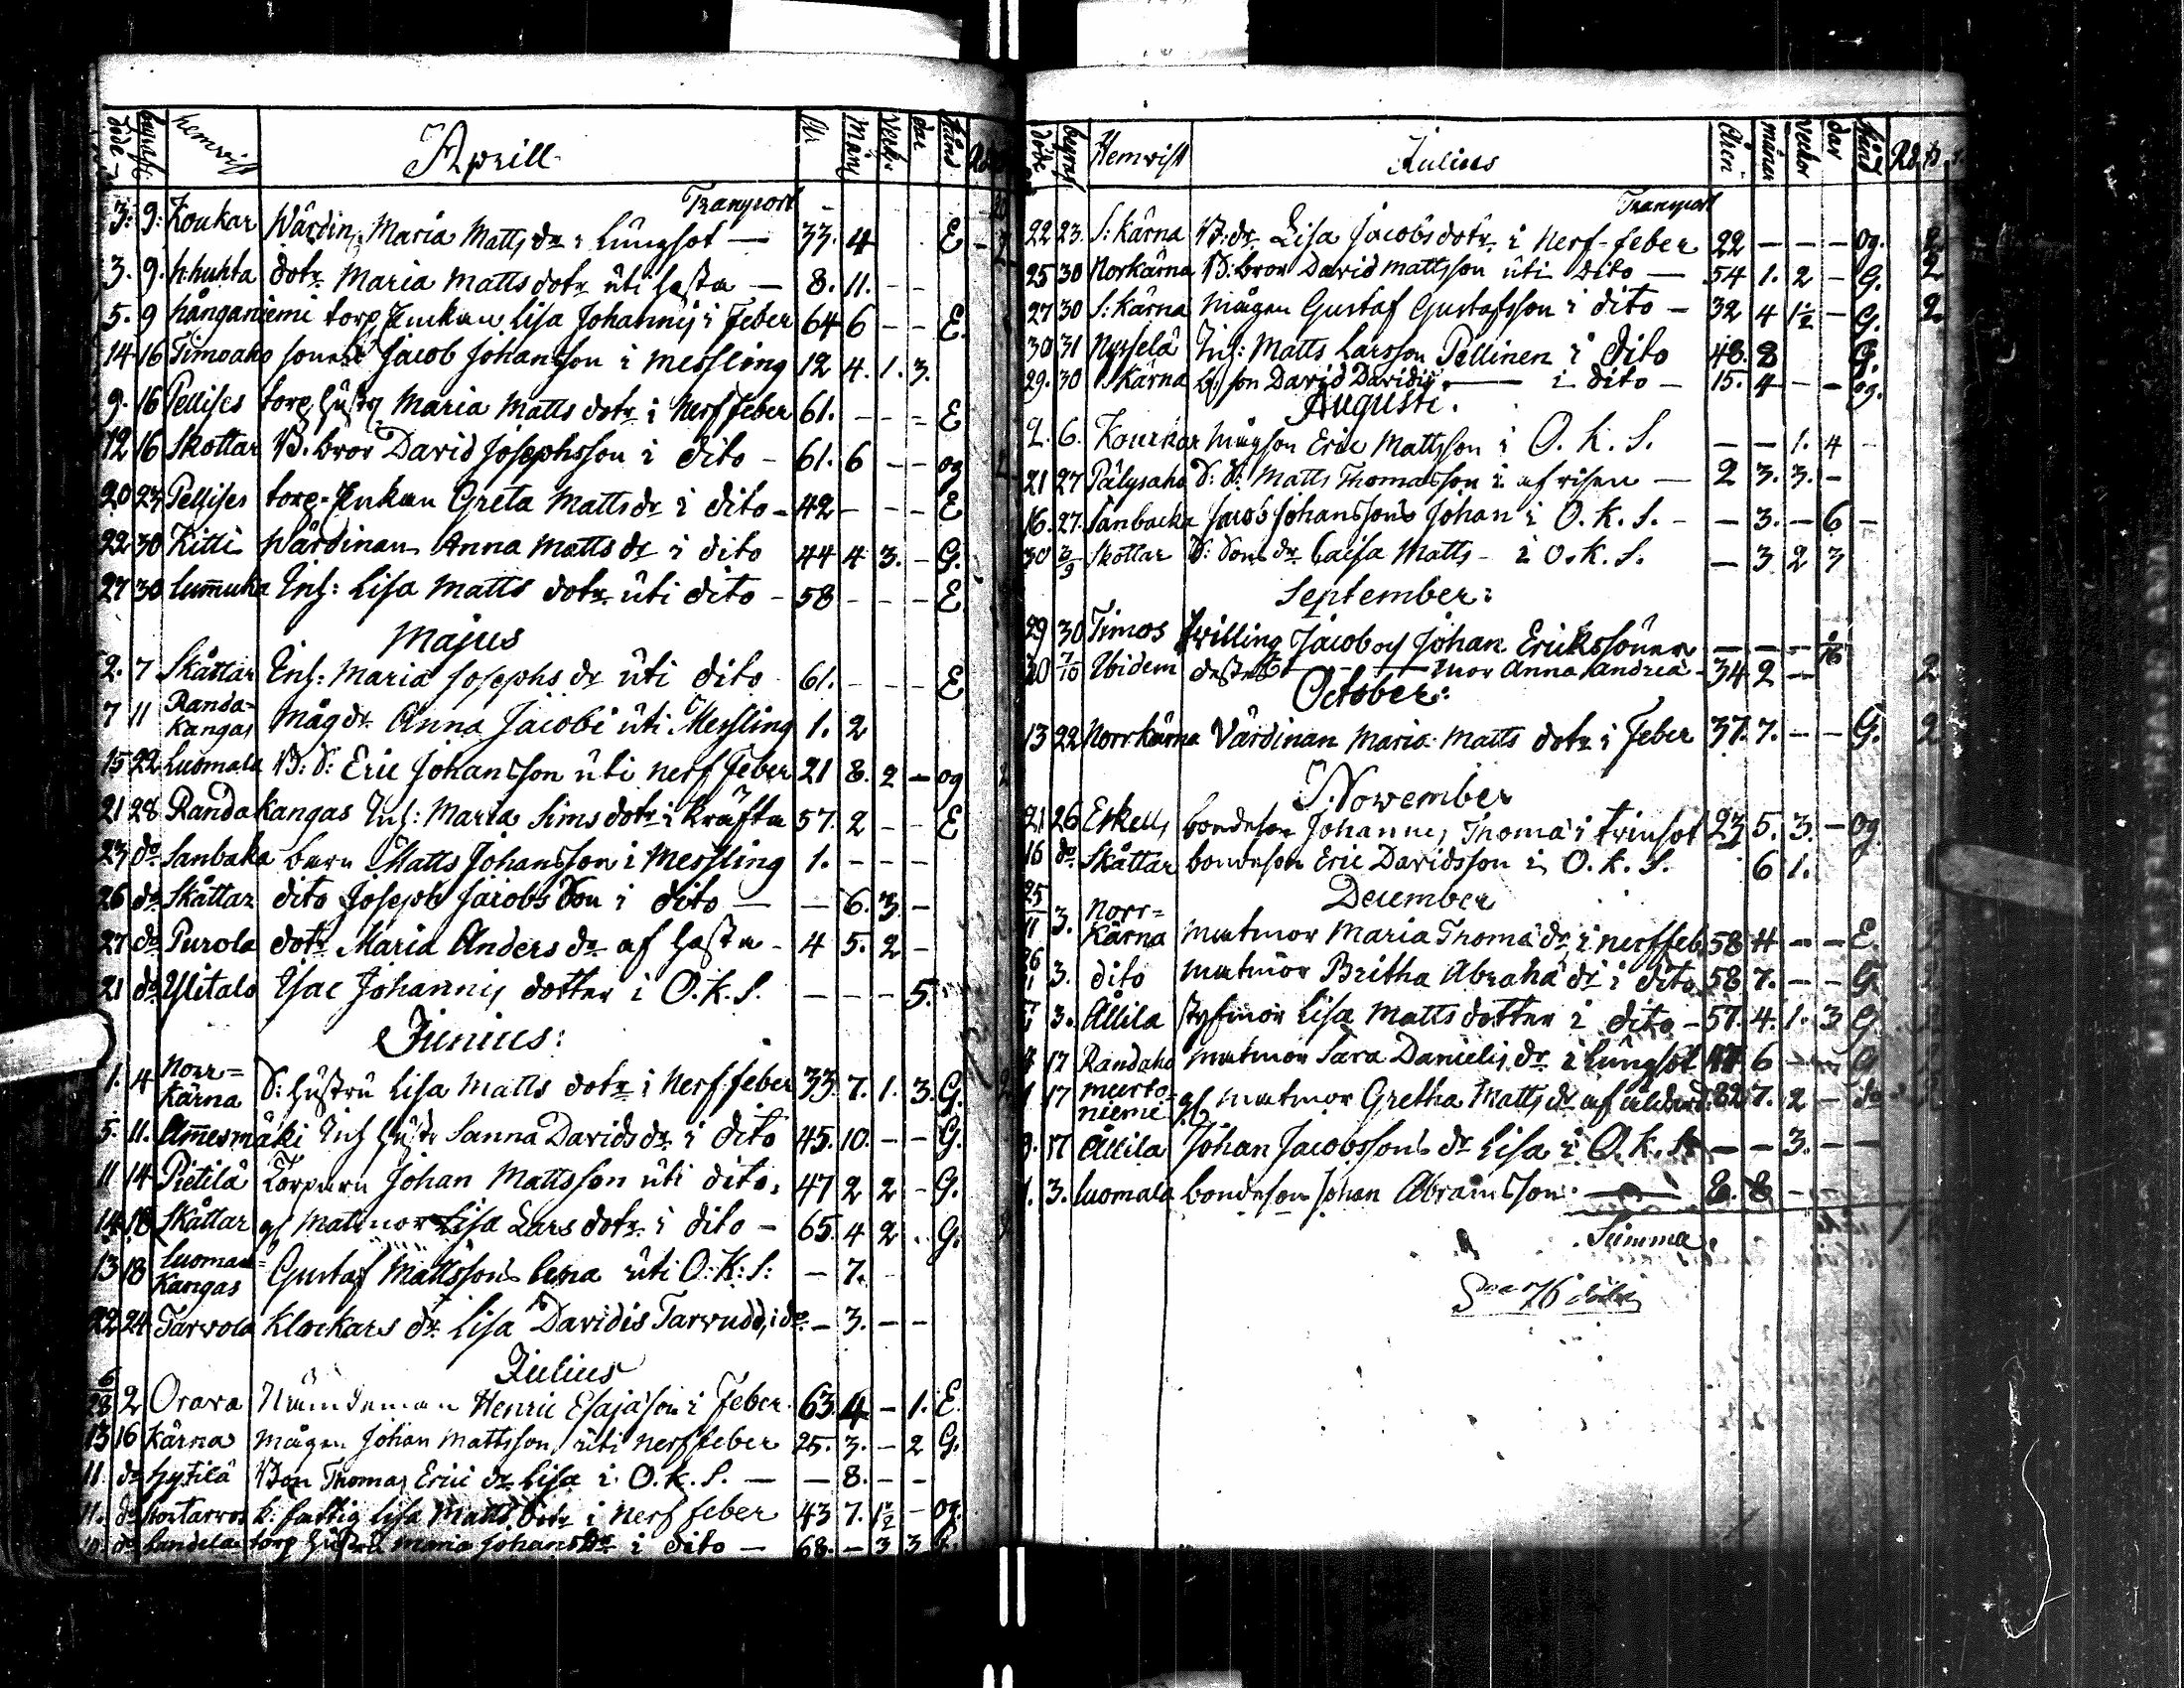 döde begraf: hemvist Aprill År Mån Veck: dar Stånd
Transport
3. 9. Koukar Wärdin: Maria Matts dr i lungsot — 33. 4 E
3. 9. h.huhta dotr Maria Matts dotr uti hosta — 8. 11. - -
5. 9 hånganiemi torp Enkan Lisa Johannis i Feber 64 6 - - E.
14 16 Timoaho Jacob Johansson i Messling 12 4. 1. 3.
9. 16 Pellises torp hustr Maria Matts dotr i Nerf Feber 61. - - - E
12 16 Skottar B. bror David Josephsson i dito - 61. 6 - - og
20 23 Pellises torp-Enkan Greta Matts dr i dito - 42 - - - E
22 30 Kitti Wärdinan Anna Matts dr i dito 44 4 3. - G.
27 30 lummuka Inh: Lisa Matts dotr uti dito - 58 - - - E
Majus
2. 7 Skåttar Inh: Maria Josephs dr uti dito 61. - - - E
7 11 Randa-kangas Måg dr Anna Jacobi uti Messling 1. 2
15 22 Luomala B: S: Eric Johansson uti nerf Feber 21 8. 2 - og
21 28 Randakangas Inh: Maria Sims dotr i Kräfta 57. 2 - - E
23 do Sanbaka barn Matts Johansson i Messling 1. - - -
26 do Skåttar dito Joseph Jacobs Son i dito — - 6. 3. -
27 do Purola dotr Maria Anders dr af hosta - 4 5. 2 -
21 do Ylitalo Isac Johannis dotter i O.K.S. - - - 5.
Junius:
1. 4 Norr=kärna S: hustru Lisa Matts dotr i Nerf feber 33. 7. 1. 3. G.
5. 11. Ammesmäki Inh hustr Sanna Davids dr i dito 45. 10. - - G.
11 14 Pietilä Torparn Johan Mattsson uti dito. 47 2 2 - G.
14 18 Skåttar gl Matmor Lisa Lars dotr i dito - 65. 4 2 . G.
13 18 Luoman=kangas Gustaf Mattssons Lena uti O:K:S: - 7. -
22 24 Tarvola Klockars dr Lisa Davidis Tarvudd, i do - 3. - -
Julius
6/28 2 Orava Nämdeman Henric Esajason i Feber. 63. 4 - 1. E.
13 16 Kärna Mågen Johan Mattsson uti nerffeber 25. 3. - 2 G.
11. do hytilä Bon Thomas Erici dr Lisa i O.K.S. — - 8. - -
11. do K: fattig Lisa Matts dotr i Nerf feber 43 7. 1½ - og.
10. do torp hustru Maria Johans dr i dito — 68. - 3 3
döde begraf Hemvist Julius Åhr: månar veckor dar Stånd Rd. s.
Transport
22 23. S: kärna B: dr Lisa Jacobs dotr i Nerf-feber 22 - - - og. 2
25 30 Norkärna B: bror David Mattsson uti dito — 54 1. 2 - G. 2
27 30 S: kärna Mågen Gustaf Gustafsson i dito - 32 4 1½ - G. 2.
30 31 Nysselä Inh: Matts Larsson Pellinen i dito 48. 8 G.
29. 30 S. Kärna b: son David Davidis — i dito - 15. 4 - - og.
Augusti.
2. 6. Kourkar Mågson Eric Mattsson i O. K. S. - - 1. 4 -
21 27 Pälysaho S: S: Matts Thomasson i af risen — 2 3. 3. -
16. 27. Sanbacka Jacob Johanssons Johan i O. K. S. - - 3. - 6 -
30 3/9 Skottar S: Sons dr Caisa Matts - i O. K. S. - 3. 2 3
September:
29 30 Timos trilling Jacob och Johan Ericksöner - - -
30 7/10 Ibidem mor Anna Andrea - 34 2 - 2
October:
13 22 Norrkärna Värdinan Maria Matts dotr i Feber 37. 7. - - G. 2
November
21 26 Eskells bondeson Johannes Thomä i trinsot 23 5. 3. - og.
16 do Skåttar bondeson Eric Davidsson i O. K. S. 6 1.
December
25/11 3. Norr=kärna matmor Maria Thomä dr i nerffeb. 58 4 - - E.
3. dito matmor Britha Abraha dr i dito 58 7. - - G.
3. Ållila styfmor Lisa Matts dotter i dito - 57. 4. 1. 3 G.
17 Randaho matmor Sara Danielis dr i lungsot 47 6 - -
17 murto-niemi gl matmor Gretha Matts dr af ålderd. 82 7. 2 - do
17 Ållila Johan Jacobssons dr Lisa i O. K. S. - - 3. - -
3. Luomala bondeson Johan Abramsson. — 2. 8 - -
Summa.
76 döda